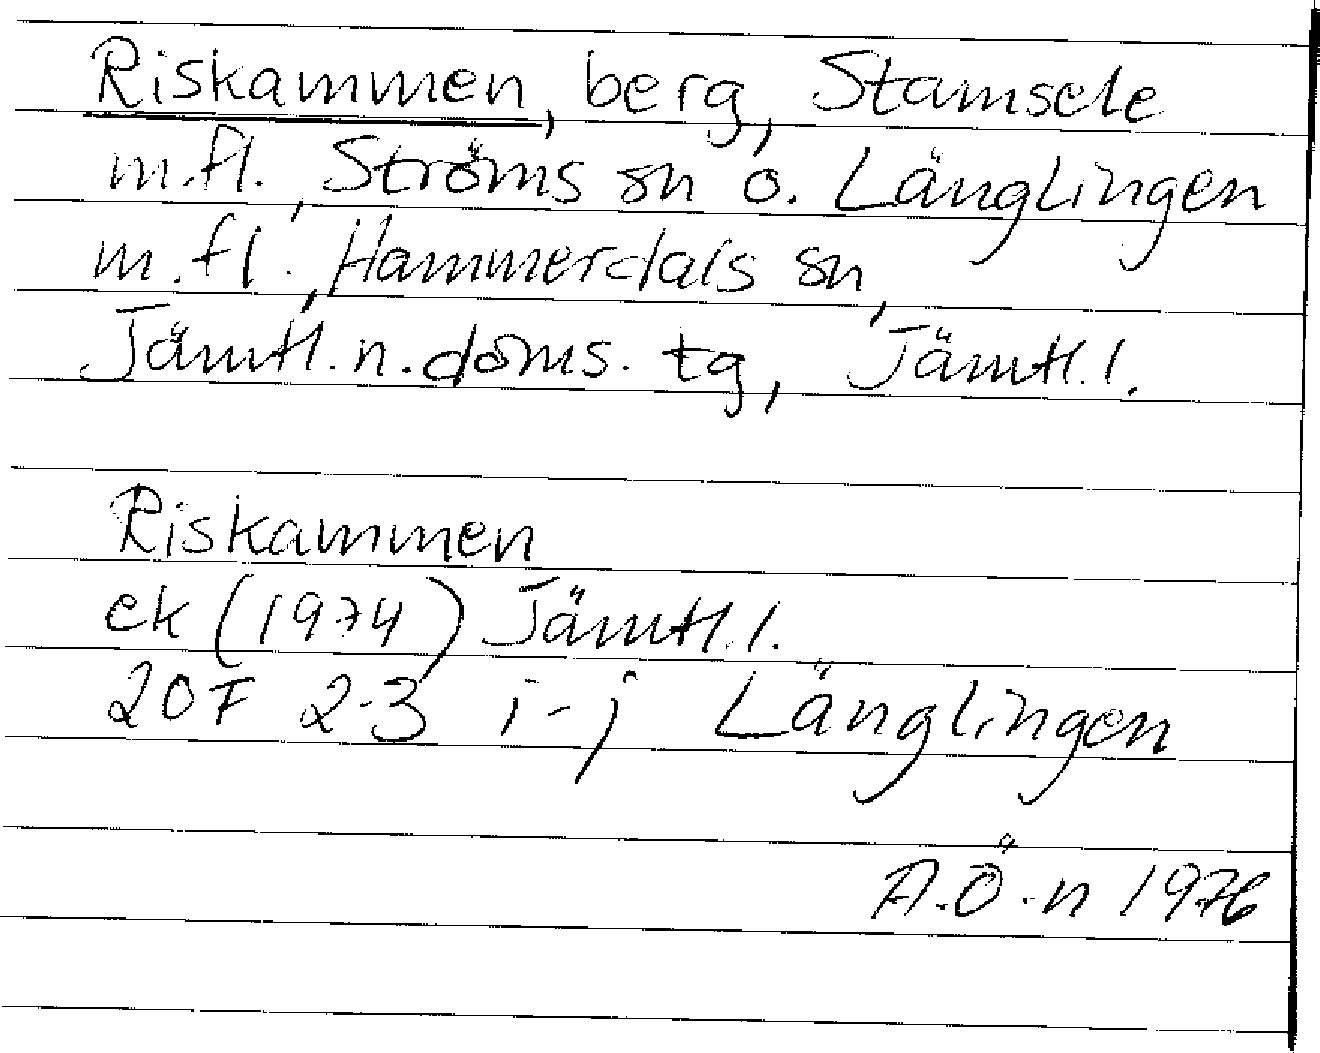 Riskammen, berg, Stamsele
m.fl., Ströms sn o. Länglingen
m.fl., Hammerdals sn,
Jämtl.n.doms. tg, Jämtl.l.
Riskammen
ek (1974) Jämtl.l.
20F 2-3 i-j Länglingen
A.Ö-n 1976